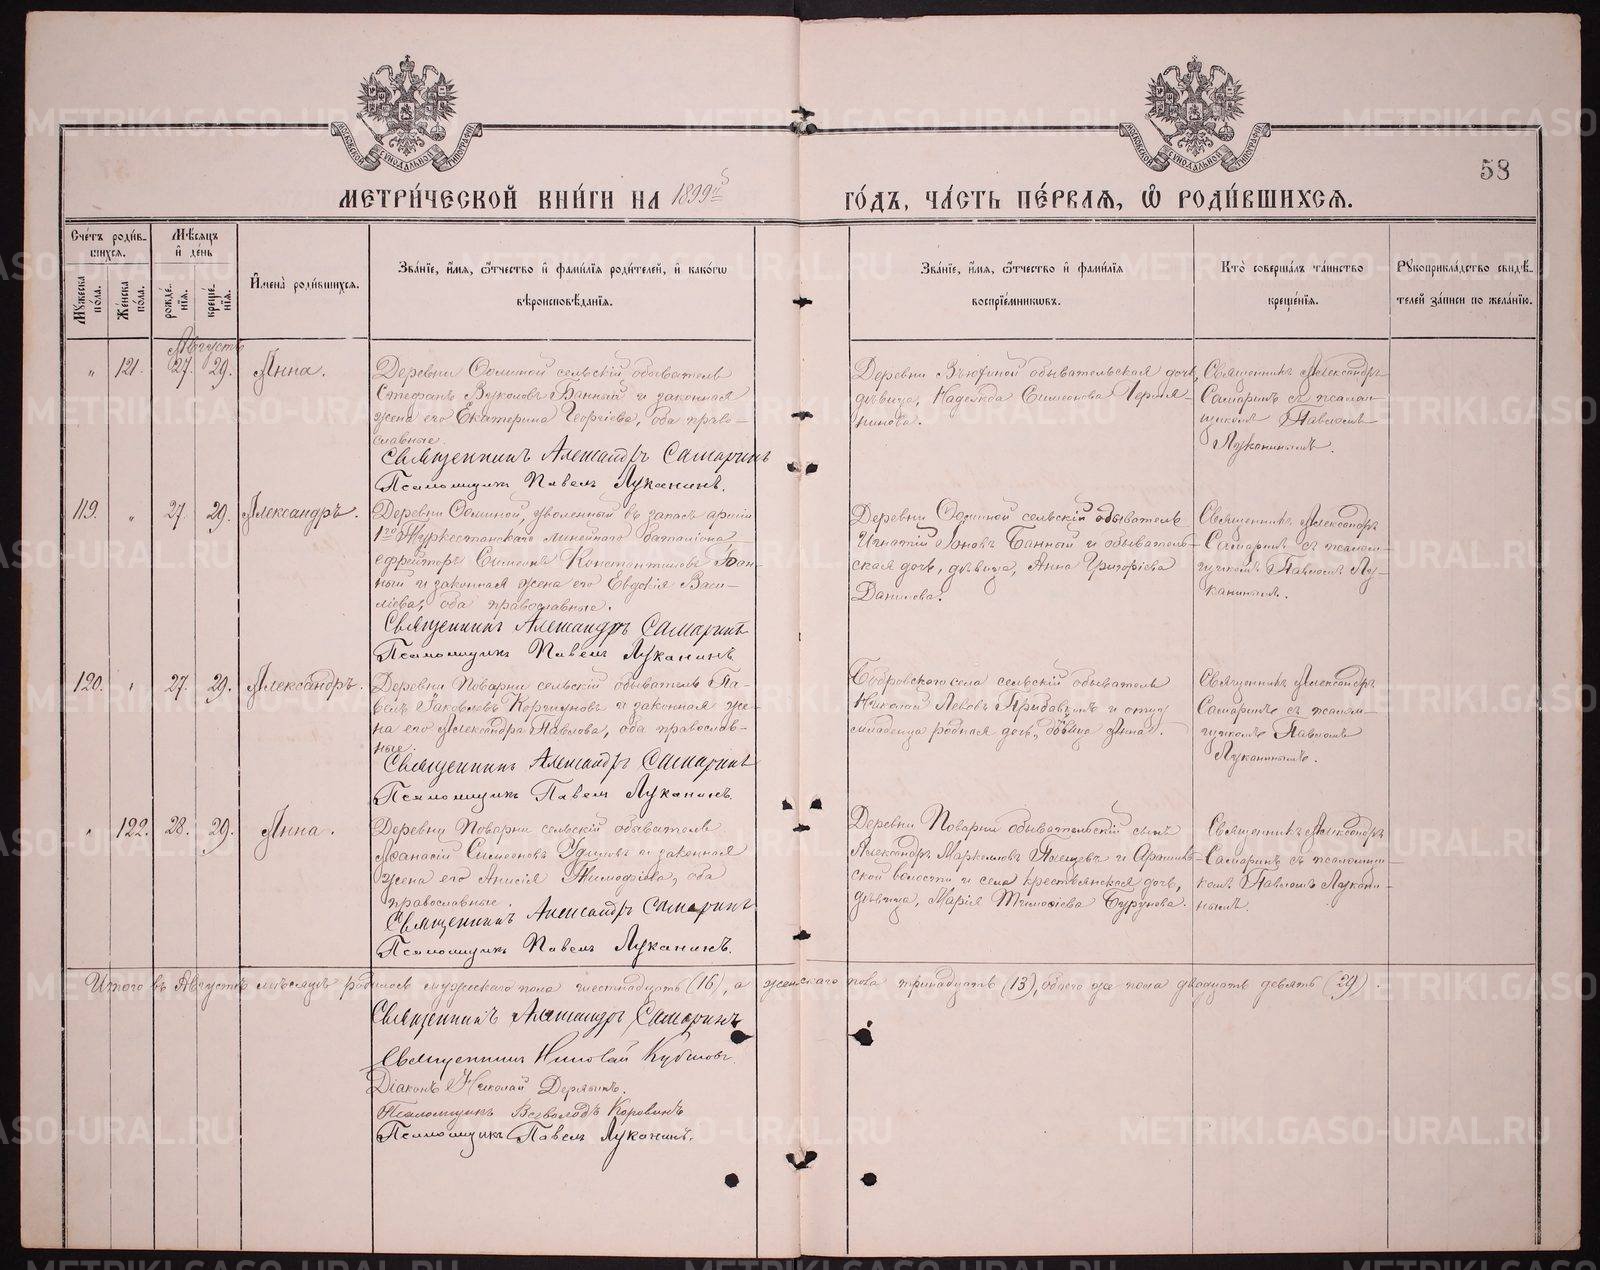 58
МЕТРИ́ЧЕСКОЙ КНИ́ГИ НА 1899й ГО́ДЪ, ЧА́СТЬ ПЕ́РВАЯ, Ѡ РОДИ́ВШИХСЯ.
Сче́тъ роди́вшихся.
Мужеска по́ла.
Же́нска по́ла.
Мѣ́сяцъ и де́нь
рожде́нїя.
креще́нїя.
Имена̀ роди́вшихся.
Зва́нїе, и́мя, ѻ́тчество и фами́лїя роди́телей, и како́гѡ вѣроисповѣ́данїя.
Зва́нїе, и́мя, ѻ́тчество и фами́лїя воспрїе́мниковъ.
Кто̀ соверша́лъ та́инство креще́нїя.
Рукоприкла́дство свидѣ́телей за́писи по жела́нїю.
Августъ
„ 121. 27. 29. Анна.
Деревни Ѳоминой сельскій обыватель
Стефанъ Вуколовъ Банный и законная
жена его Екатерина Георгіева, оба право-
славные.
Священникъ Александръ Самаринъ
Псаломщикъ Павелъ Луканинъ.
Деревни Зъюзиной обывательская дочь,
дѣвица, Надежда Симеонова
Священникъ Александръ
Самаринъ съ псалом-
щикомъ Павломъ
Луканинымъ.
119. „ 27. 29. Александръ.
Деревни Ѳоминой, уволенный въ запасъ арміи
1го Туркестанскаго линейнаго баталіона
ефрейторъ Симеонъ Константиновъ Бан-
ный и законная жена его Евдокія Васи-
ліева, оба православные.
Священникъ Александръ Самаринъ
Псаломщикъ Павелъ Луканинъ
Деревни Ѳоминой сельскій обыватель
Игнатій Іоновъ Банный и обыватель-
ская дочь, дѣвица, Анна Григоріева
Данилова.
Священникъ Александръ
Самаринъ съ псалом-
щикомъ Павломъ Лу-
канинымъ.
120. „ 27. 29. Александръ.
Деревни Поварни сельскій обыватель Па-
велъ Іаковлевъ Коргиуновъ и законная же-
на его Александра Павлова, оба православ-
ные.
Священникъ Александръ Самаринъ
Псаломщикъ Павелъ Луканинъ.
Бобровскаго села сельскій обыватель
Николай Львовъ и отцу
младенца родная дочь, дѣвица Анна.
Священникъ Александръ
Самаринъ съ псалом-
щикомъ Павломъ
Луканинымъ.
„ 122. 28. 29. Анна.
Деревни Поварни сельскій обыватель
Аѳанасій Симеоновъ и законная
жена его Анисія Тимофіева, оба
православные.
Священникъ Александръ Самаринъ
Псаломщикъ Павелъ Луканинъ.
Деревни Поварни обывательскій сынъ
Александръ Маркелловъ Плещевъ и Арамиль-
ской волости и села крестьянская дочь,
дѣвица, Марія Тимоѳіева Бурунова.
Священникъ Александръ
Самаринъ съ псаломщи-
комъ Павломъ Лукани-
нымъ.
Итого въ Августѣ мѣсяцѣ родилось мужескаго пола шестнадцать (16), а женскаго пола тринадцать (13), обоего же пола двадцать девять (29).
Священникъ Александръ Самаринъ
Священникъ Николай
Діаконъ Николай Дерябинъ.
Псаломщикъ Всеволодъ Коровинъ
Псаломщикъ Павелъ Луканинъ.
METRIKI.GASO-URAL.RU